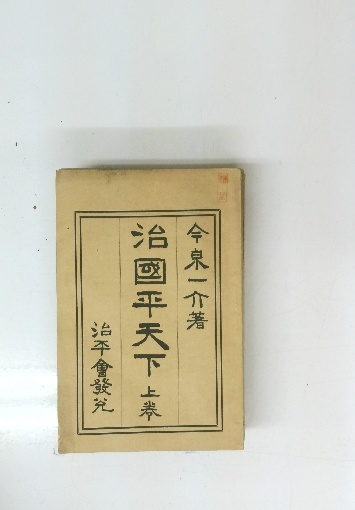 今泉一介著
治國平天下 上巻
治平會發兌